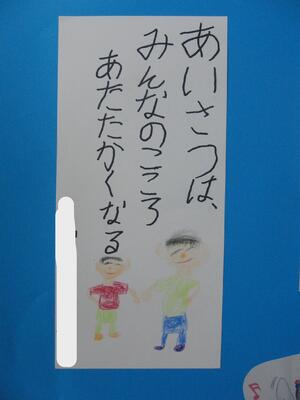 あいさつは、
みんなのこころ
あたたかくなる